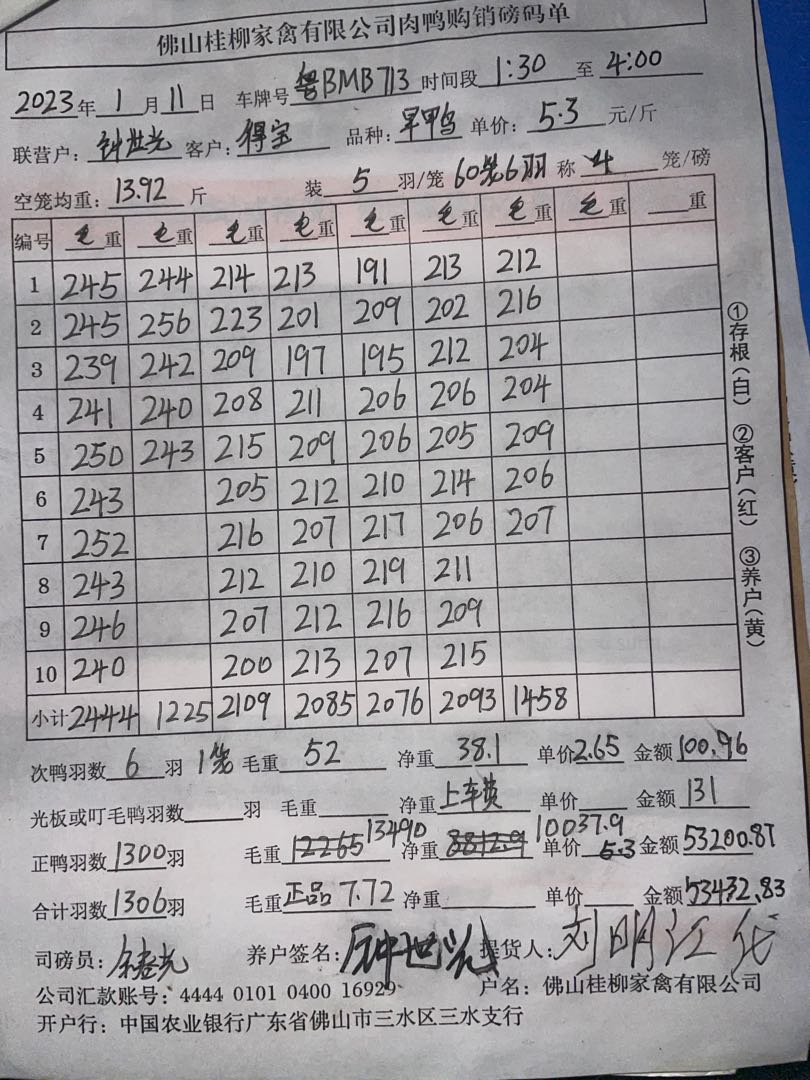 佛山桂柳家禽有限公司肉鸭购销磅码单
2023年 1 月 11 日 车牌号 粤BMB713 时间段 1:30 至 4:00
联营户: 钟世光 客户: 得宝 品种: 旱鸭 单价: 5.3 元/斤
空笼均重: 13.92 斤 装 5 羽/笼 60笼6羽 称 4 笼/磅
编号 毛重 毛重 毛重 毛重 毛重 毛重 毛重 毛重 重
1 245 244 214 213 191 213 212
2 245 256 223 201 209 202 216
3 239 242 209 197 195 212 204
4 241 240 208 211 206 206 204
5 250 243 215 209 206 205 209
6 243 205 212 210 214 206
7 252 216 207 217 206 207
8 243 212 210 219 211
9 246 207 212 216 209
10 240 200 213 207 215
小计 2444 1225 2109 2085 2076 2093 1458
次鸭羽数 6 羽 1笼 毛重 52 净重 38.1 单价 2.65 金额 100.96
光板或叮毛鸭羽数 羽 毛重 净重 上车费 单价 金额 131
正鸭羽数 1300 羽 毛重 12265 13490 净重 8812.9 10037.9 单价 5.3 金额 53200.87
合计羽数 1306 羽 毛重 正品 7.72 净重 单价 金额 53432.83
司磅员: 养户签名: 钟世光 提货人: 刘明江 代
公司汇款账号: 4444 0101 0400 16929 户名: 佛山桂柳家禽有限公司
开户行: 中国农业银行广东省佛山市三水区三水支行
①存根(白) ②客户(红) ③养户(黄)